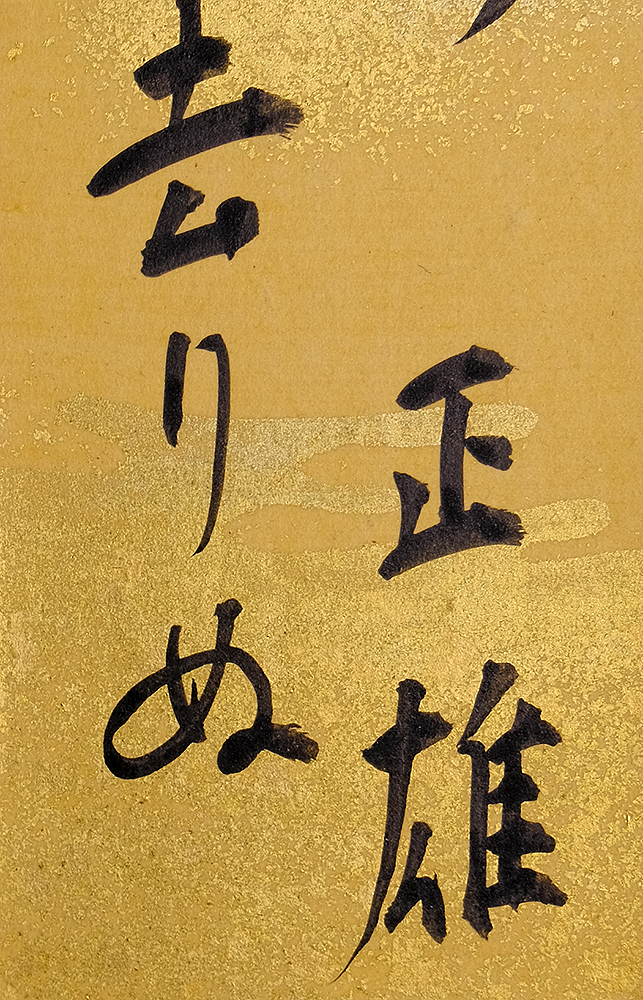 正雄
去りぬ